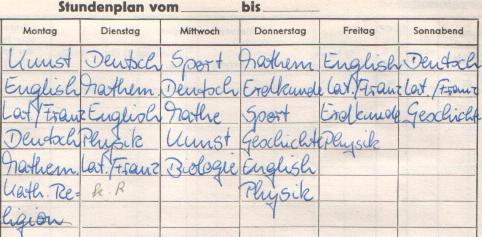 Stundenplan vom ______ bis ______
Montag Dienstag Mittwoch Donnerstag Freitag Sonnabend
Kunst Deutsch Sport Mathem. English Deutsch
English Mathem. Deutsch Erdkunde Lat./Franz Lat./Franz
Lat/Franz English Mathe Sport Erdkunde Geschichte
Deutsch Physik Kunst Geschichte Physik
Mathem. Lat./Franz Biologie English
Kath. Re- k. R Physik
ligion